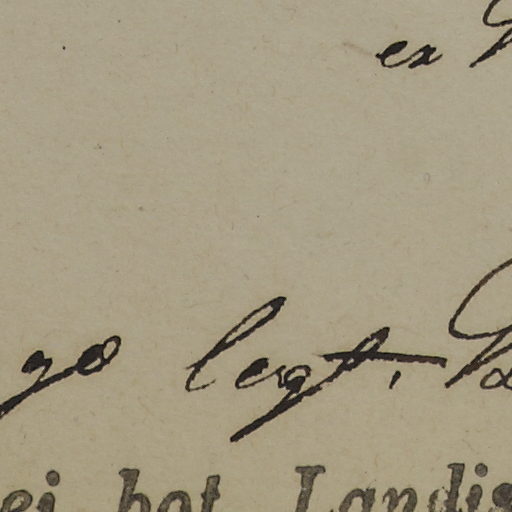 ex
go legt.
ei bot. Landis